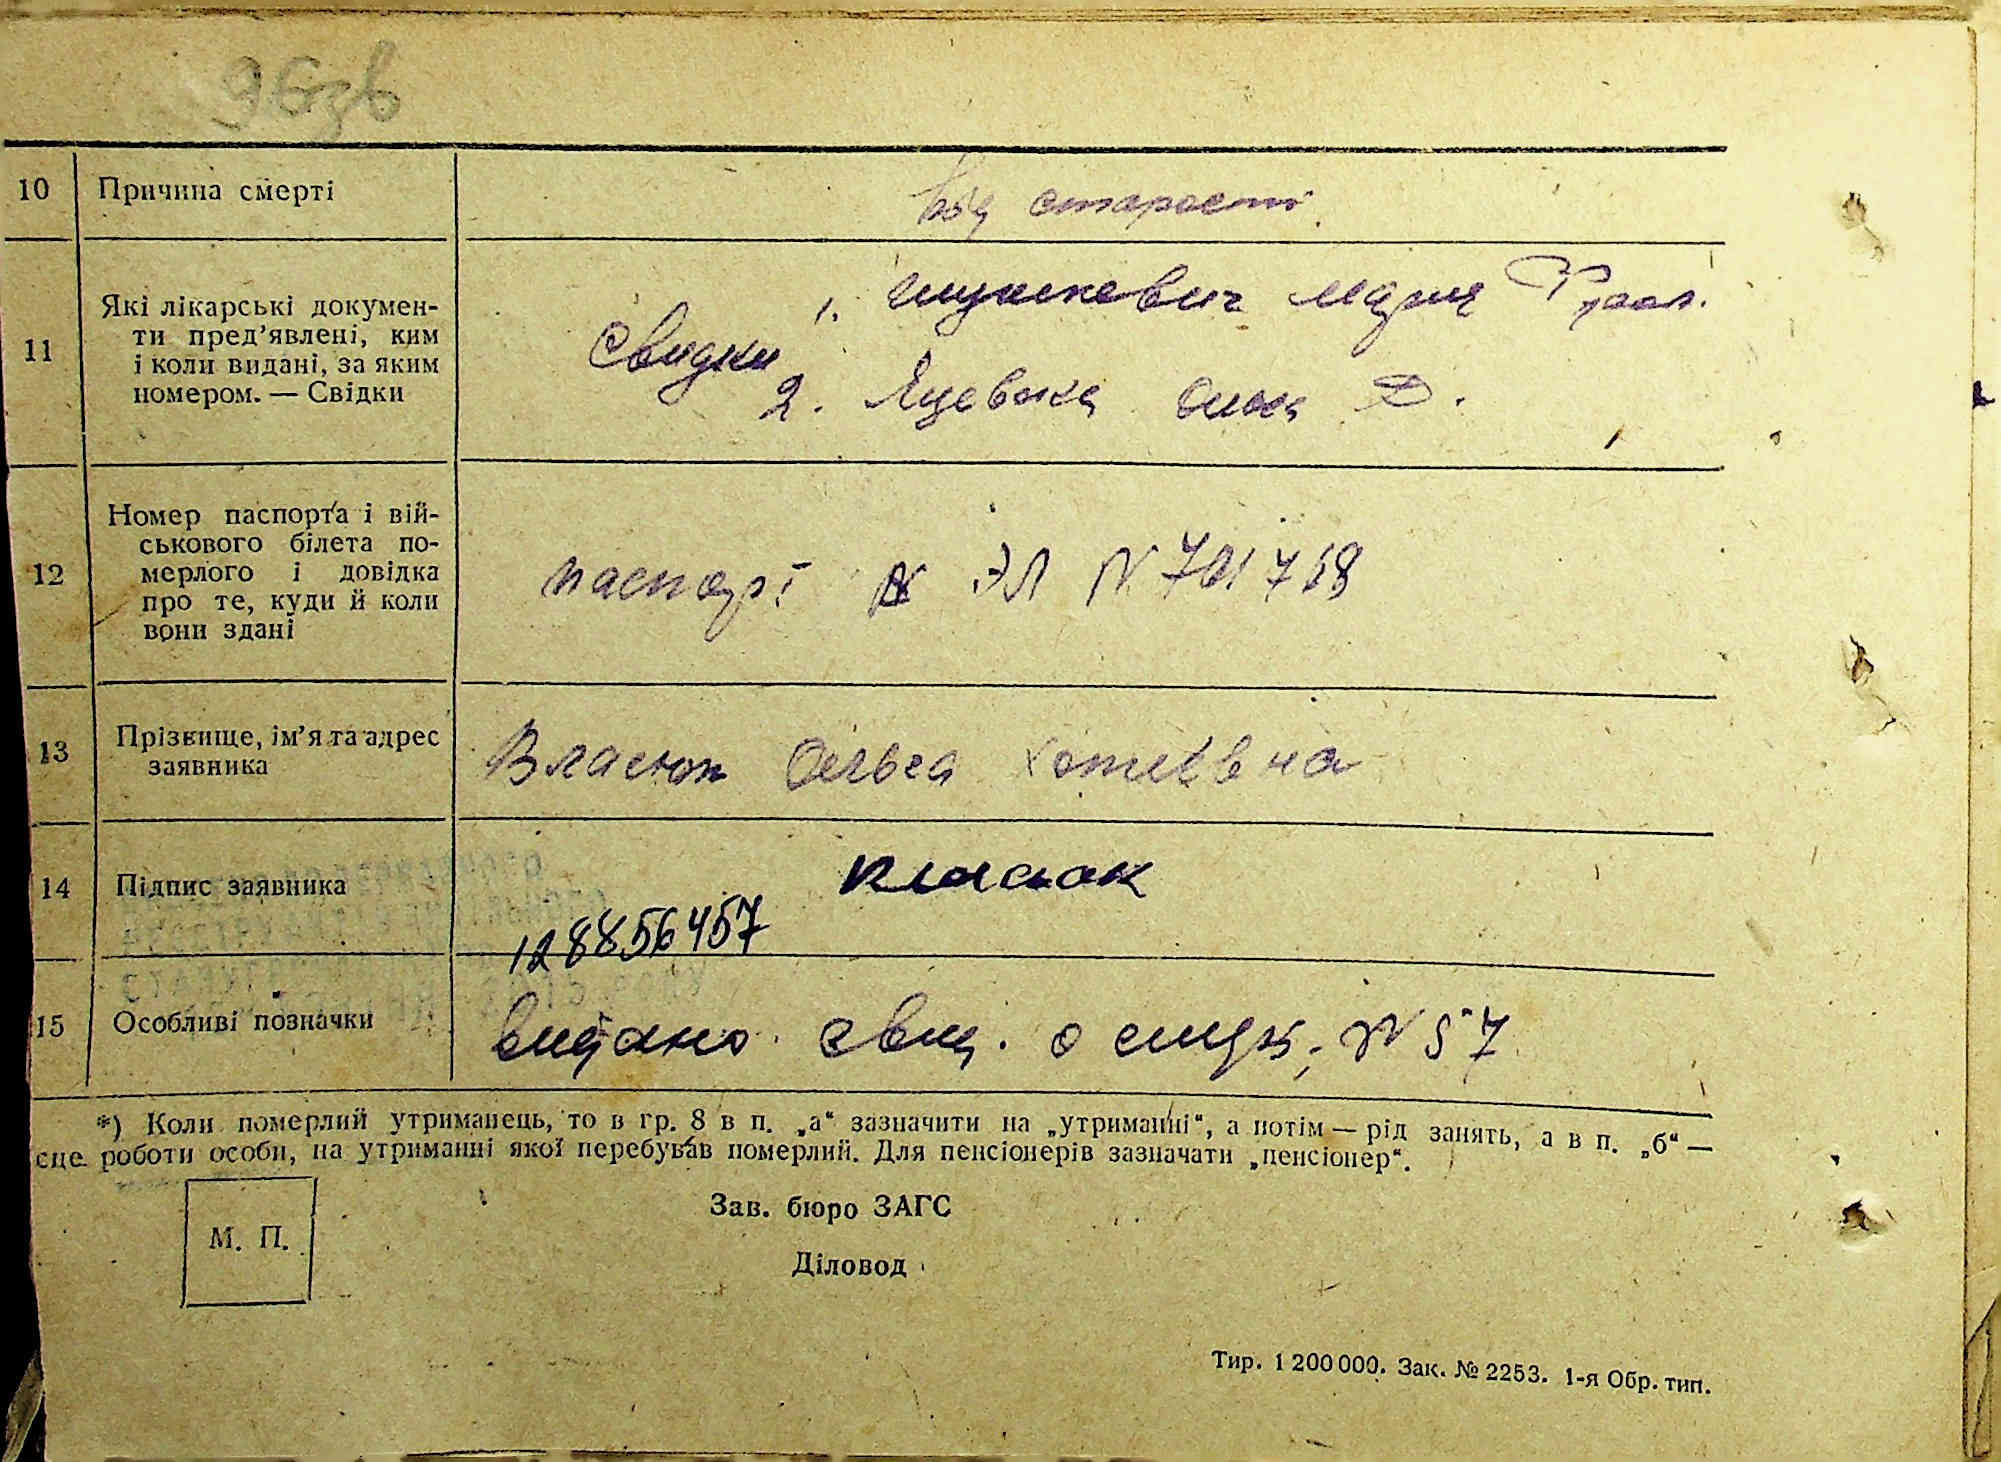 10 Причина смерті
Від старості
11 Які лікарські докумен-
ти пред’явлені, ким
і коли видані, за яким
номером. — Свідки
Свидки
1. Марія
2. Яцевька Ольга Д.
12 Номер паспорта і вій-
ськового білета по-
мерлого і довідка
про те, куди й коли
вони здані
паспорт № ЭЛ N 701718
13 Прізвище, ім’я та адрес
заявника
Власюк Ольга Хотіївна
14 Підпис заявника
Власюк
128856457
15 Особливі позначки
видано свид. о смерт. № 57
*) Коли померлий утриманець, то в гр. 8 в п. „а“ зазначити на „утриманні“, а потім — рід занять, а в п. „б“ —
сце роботи особи, на утриманні якої перебував померлий. Для пенсіонерів зазначати „пенсіонер“.
М. П.
Зав. бюро ЗАГС
Діловод
Тир. 1 200 000. Зак. № 2253. 1-я Обр. тип.